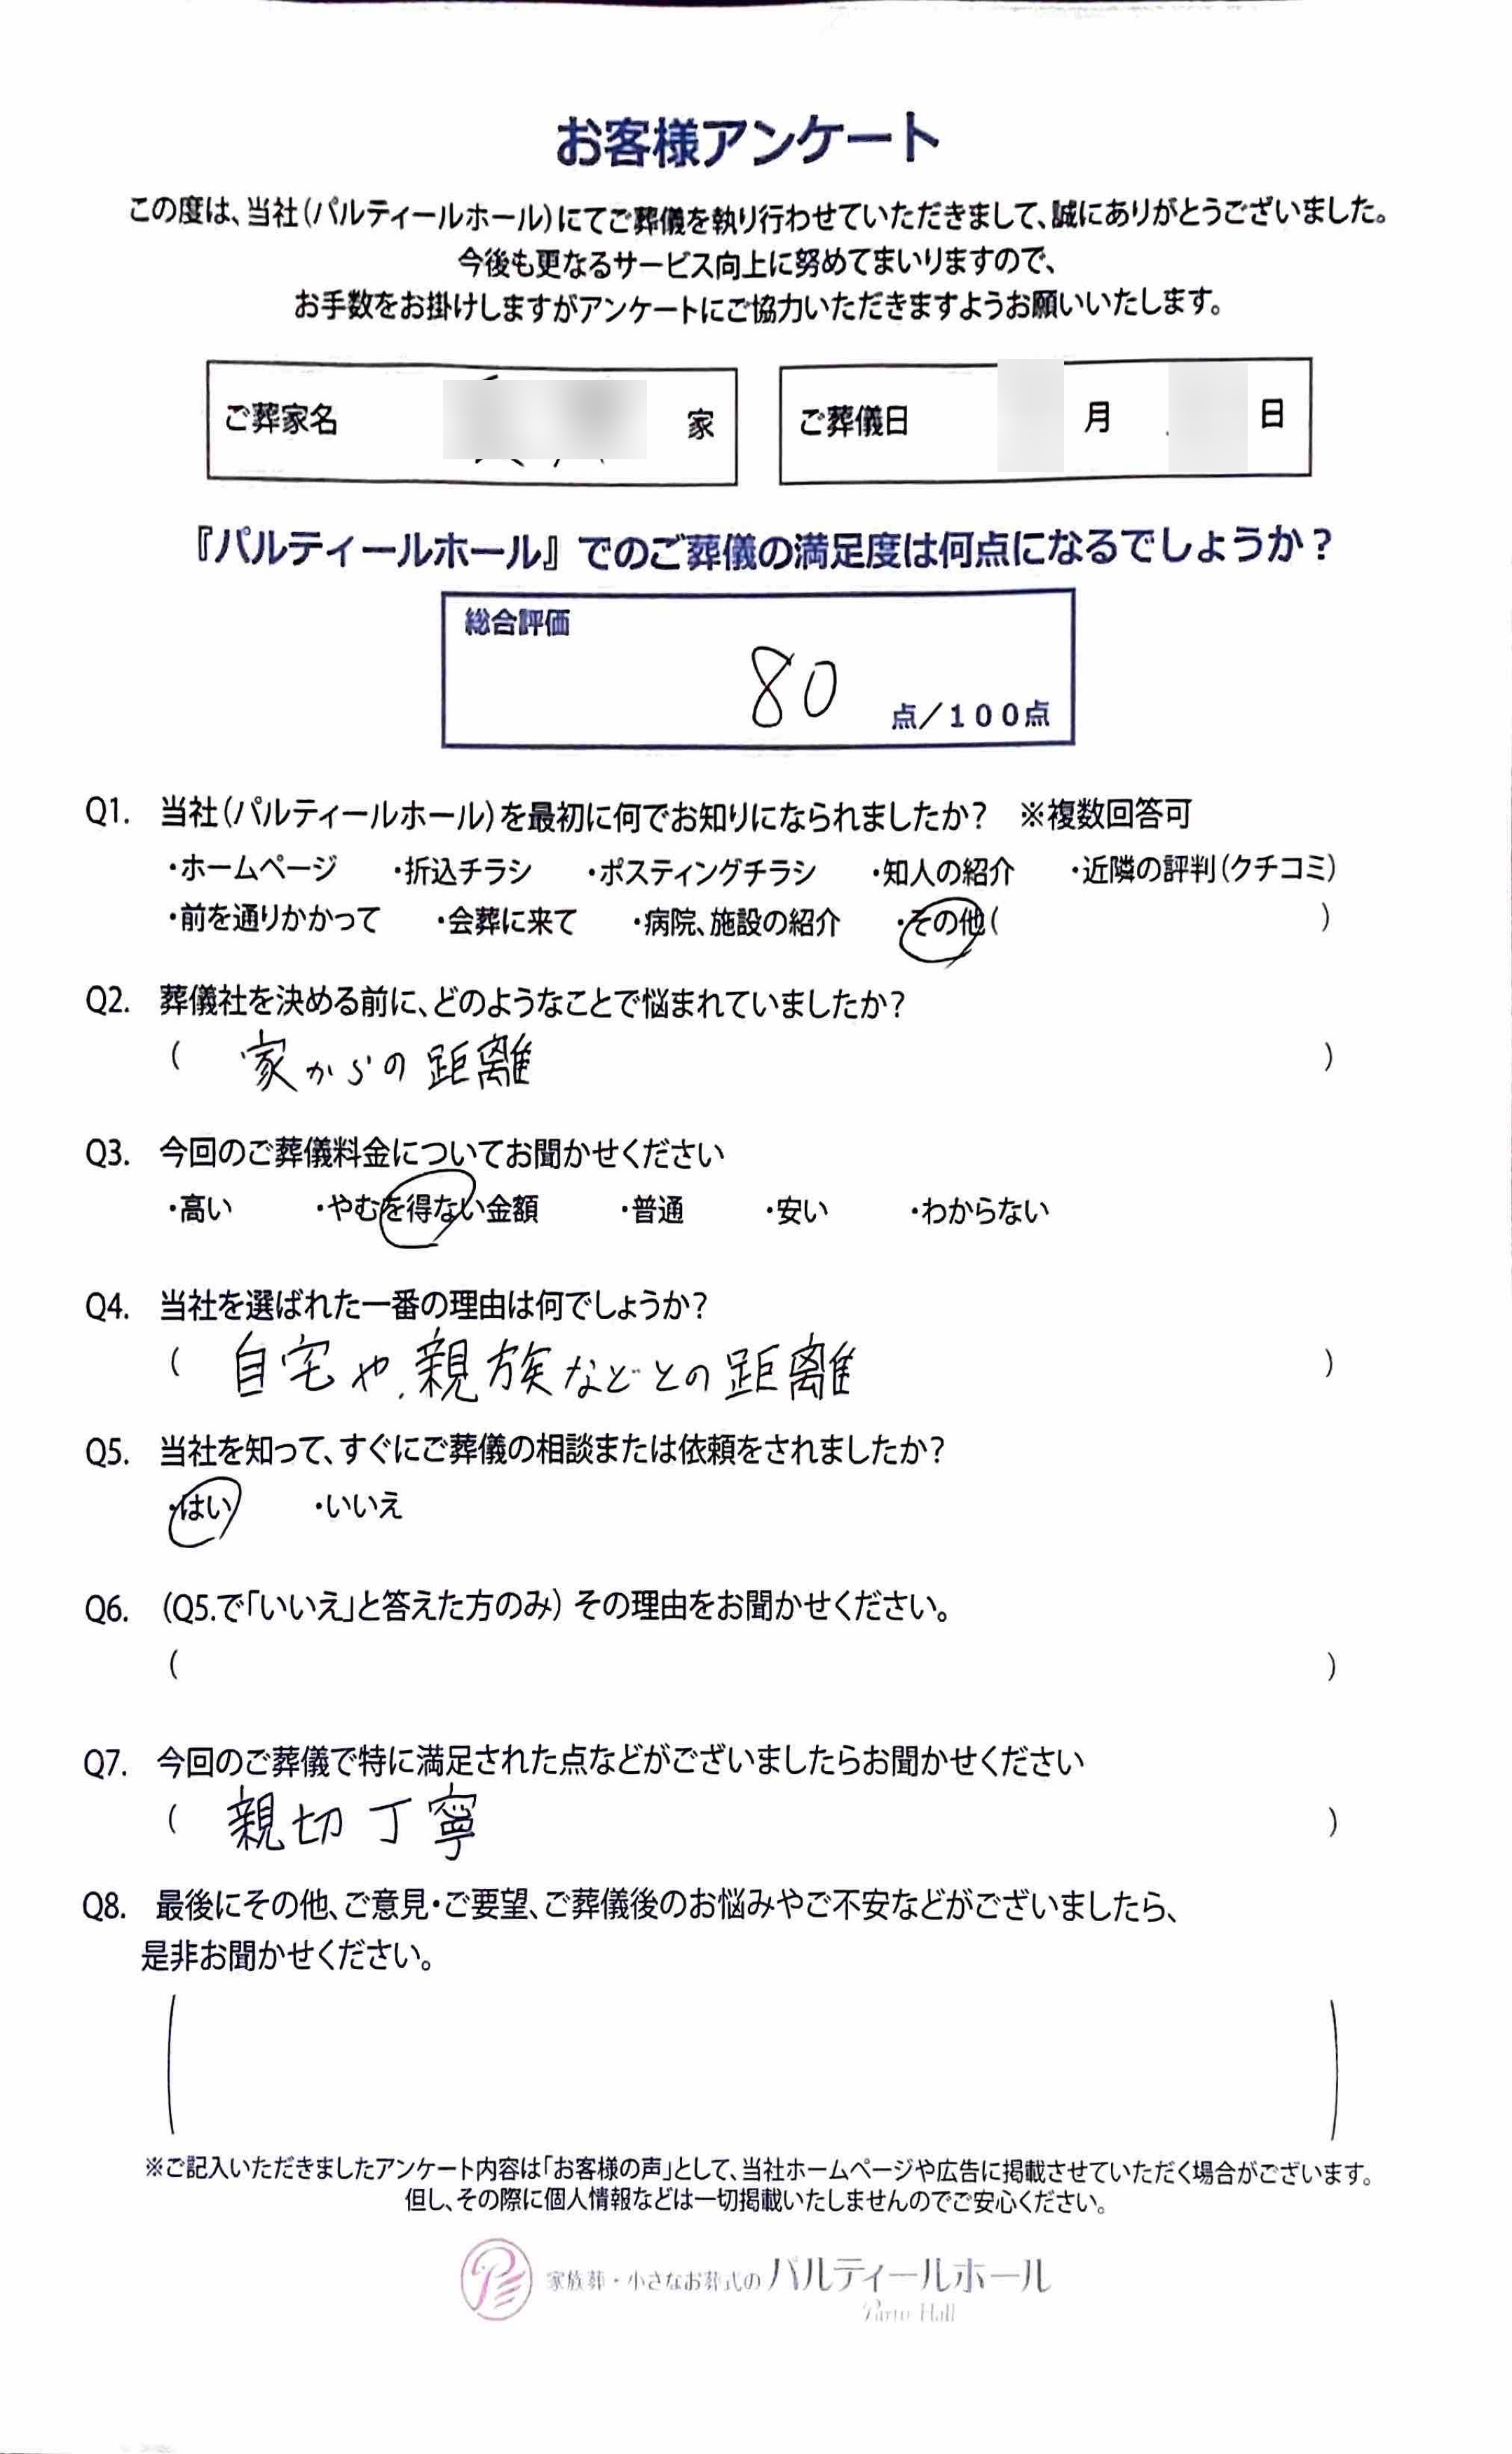 お客様アンケート
この度は、当社(パルティールホール)にてご葬儀を執り行わせていただきまして、誠にありがとうございました。
今後も更なるサービス向上に努めてまいりますので、
お手数をお掛けしますがアンケートにご協力いただきますようお願いいたします。
ご葬家名 家 ご葬儀日 月 日
『パルティールホール』でのご葬儀の満足度は何点になるでしょうか?
総合評価
80 点/100点
Q1. 当社(パルティールホール)を最初に何でお知りになられましたか? ※複数回答可
・ホームページ ・折込チラシ ・ポスティングチラシ ・知人の紹介 ・近隣の評判(クチコミ)
・前を通りかかって ・会葬に来て ・病院、施設の紹介 ・その他( )
Q2. 葬儀社を決める前に、どのようなことで悩まれていましたか?
( 家からの距離 )
Q3. 今回のご葬儀料金についてお聞かせください
・高い ・やむを得ない金額 ・普通 ・安い ・わからない
Q4. 当社を選ばれた一番の理由は何でしょうか?
( 自宅や、親族などとの距離 )
Q5. 当社を知って、すぐにご葬儀の相談または依頼をされましたか?
・はい ・いいえ
Q6. (Q5.で「いいえ」と答えた方のみ) その理由をお聞かせください。
( )
Q7. 今回のご葬儀で特に満足された点などがございましたらお聞かせください
( 親切丁寧 )
Q8. 最後にその他、ご意見・ご要望、ご葬儀後のお悩みやご不安などがございましたら、
是非お聞かせください。
( )
※ご記入いただきましたアンケート内容は「お客様の声」として、当社ホームページや広告に掲載させていただく場合がございます。
但し、その際に個人情報などは一切掲載いたしませんのでご安心ください。
家族葬・小さなお葬式のパルティールホール
Partir Hall